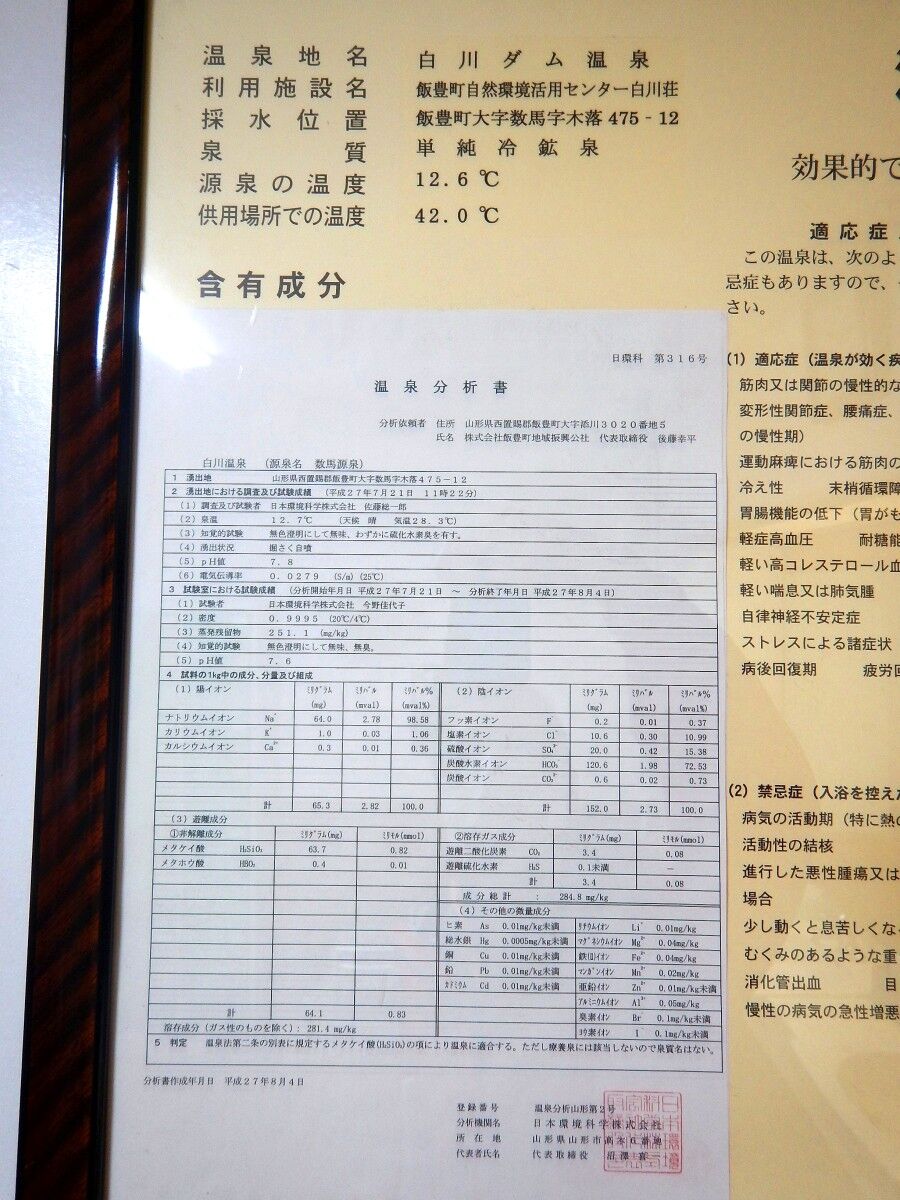 温泉地名 白川ダム温泉
利用施設名 飯豊町自然環境活用センター白川荘
採水位置 飯豊町大字数馬字木落475-12
泉質 単純冷鉱泉
源泉の温度 12.6℃
供用場所での温度 42.0℃
含有成分
日環科 第316号
温泉分析書
分析依頼者 住所 山形県西置賜郡飯豊町大字添川3020番地5
氏名 株式会社飯豊町地域振興公社 代表取締役 後藤幸平
白川温泉 (源泉名 数馬源泉)
1 湧出地 山形県西置賜郡飯豊町大字数馬字木落475-12
2 湧出地における調査及び試験成績 (平成27年7月21日 11時22分)
(1)調査及び試験者 日本環境科学株式会社 佐藤総一郎
(2)泉温 12.7℃ (天候 晴 気温28.3℃)
(3)知覚的試験 無色澄明にして無味、わずかに硫化水素臭を有す。
(4)湧出状況 掘さく自噴
(5)pH値 7.8
(6)電気伝導率 0.0279 (S/m) (25℃)
3 試験室における試験成績 (分析開始年月日 平成27年7月21日 ~ 分析終了年月日 平成27年8月4日)
(1)試験者 日本環境科学株式会社 今野佳代子
(2)密度 0.9995 (20℃/4℃)
(3)蒸発残留物 251.1 (mg/kg)
(4)知覚的試験 無色澄明にして無味、無臭。
(5)pH値 7.6
4 試料の1kg中の成分、分量及び組成
(1)陽イオン ミリグラム(mg) ミリバル(mval) ミリバル%(mval%)
ナトリウムイオン Na⁺ 64.0 2.78 98.58
カリウムイオン K⁺ 1.0 0.03 1.06
カルシウムイオン Ca²⁺ 0.3 0.01 0.36
計 65.3 2.82 100.0
(2)陰イオン ミリグラム(mg) ミリバル(mval) ミリバル%(mval%)
フッ素イオン F⁻ 0.2 0.01 0.37
塩素イオン Cl⁻ 10.6 0.30 10.99
硫酸イオン SO₄²⁻ 20.0 0.42 15.38
炭酸水素イオン HCO₃⁻ 120.6 1.98 72.53
炭酸イオン CO₃²⁻ 0.6 0.02 0.73
計 152.0 2.73 100.0
(3)遊離成分
①非解離成分 ミリグラム(mg) ミリモル(mmol)
メタケイ酸 H₂SiO₃ 63.7 0.82
メタホウ酸 HBO₂ 0.4 0.01
計 64.1 0.83
②溶存ガス成分 ミリグラム(mg) ミリモル(mmol)
遊離二酸化炭素 CO₂ 3.4 0.08
遊離硫化水素 H₂S 0.1未満 -
計 3.4 0.08
成分総計 : 284.8 mg/kg
(4)その他の微量成分
ヒ素 As 0.01mg/kg未満 リチウムイオン Li⁺ 0.01mg/kg
総水銀 Hg 0.0005mg/kg未満 マグネシウムイオン Mg²⁺ 0.04mg/kg
銅 Cu 0.01mg/kg未満 鉄(Ⅱ)イオン Fe²⁺ 0.04mg/kg
鉛 Pb 0.01mg/kg未満 マンガンイオン Mn²⁺ 0.02mg/kg
カドミウム Cd 0.01mg/kg未満 亜鉛イオン Zn²⁺ 0.01mg/kg未満
アルミニウムイオン Al³⁺ 0.05mg/kg
臭素イオン Br 0.1mg/kg未満
ヨウ素イオン I 0.1mg/kg未満
溶存成分(ガス性のものを除く): 281.4 mg/kg
5 判定 温泉法第二条の別表に規定するメタケイ酸(H₂SiO₃)の項により温泉に適合する。ただし療養泉には該当しないので泉質名はない。
分析書作成年月日 平成27年8月4日
登録番号 温泉分析山形第2号
分析機関名 日本環境科学株式会社
所在地 山形県山形市高木6番地
代表者氏名 代表取締役 沼澤
効果的で
適応症
この温泉は、次のよ
忌症もありますので、
さい。
(1) 適応症(温泉が効く疾
筋肉又は関節の慢性的な
変形性関節症、腰痛症、
の慢性期)
運動麻痺における筋肉の
冷え性 末梢循環障
胃腸機能の低下(胃がも
軽症高血圧 耐糖能
軽い高コレステロール血
軽い喘息又は肺気腫
自律神経不安定症
ストレスによる諸症状
病後回復期 疲労回
(2) 禁忌症(入浴を控えた
病気の活動期(特に熱の
活動性の結核
進行した悪性腫瘍又は
場合
少し動くと息苦しくな
むくみのあるような重
消化管出血 目
慢性の病気の急性増悪